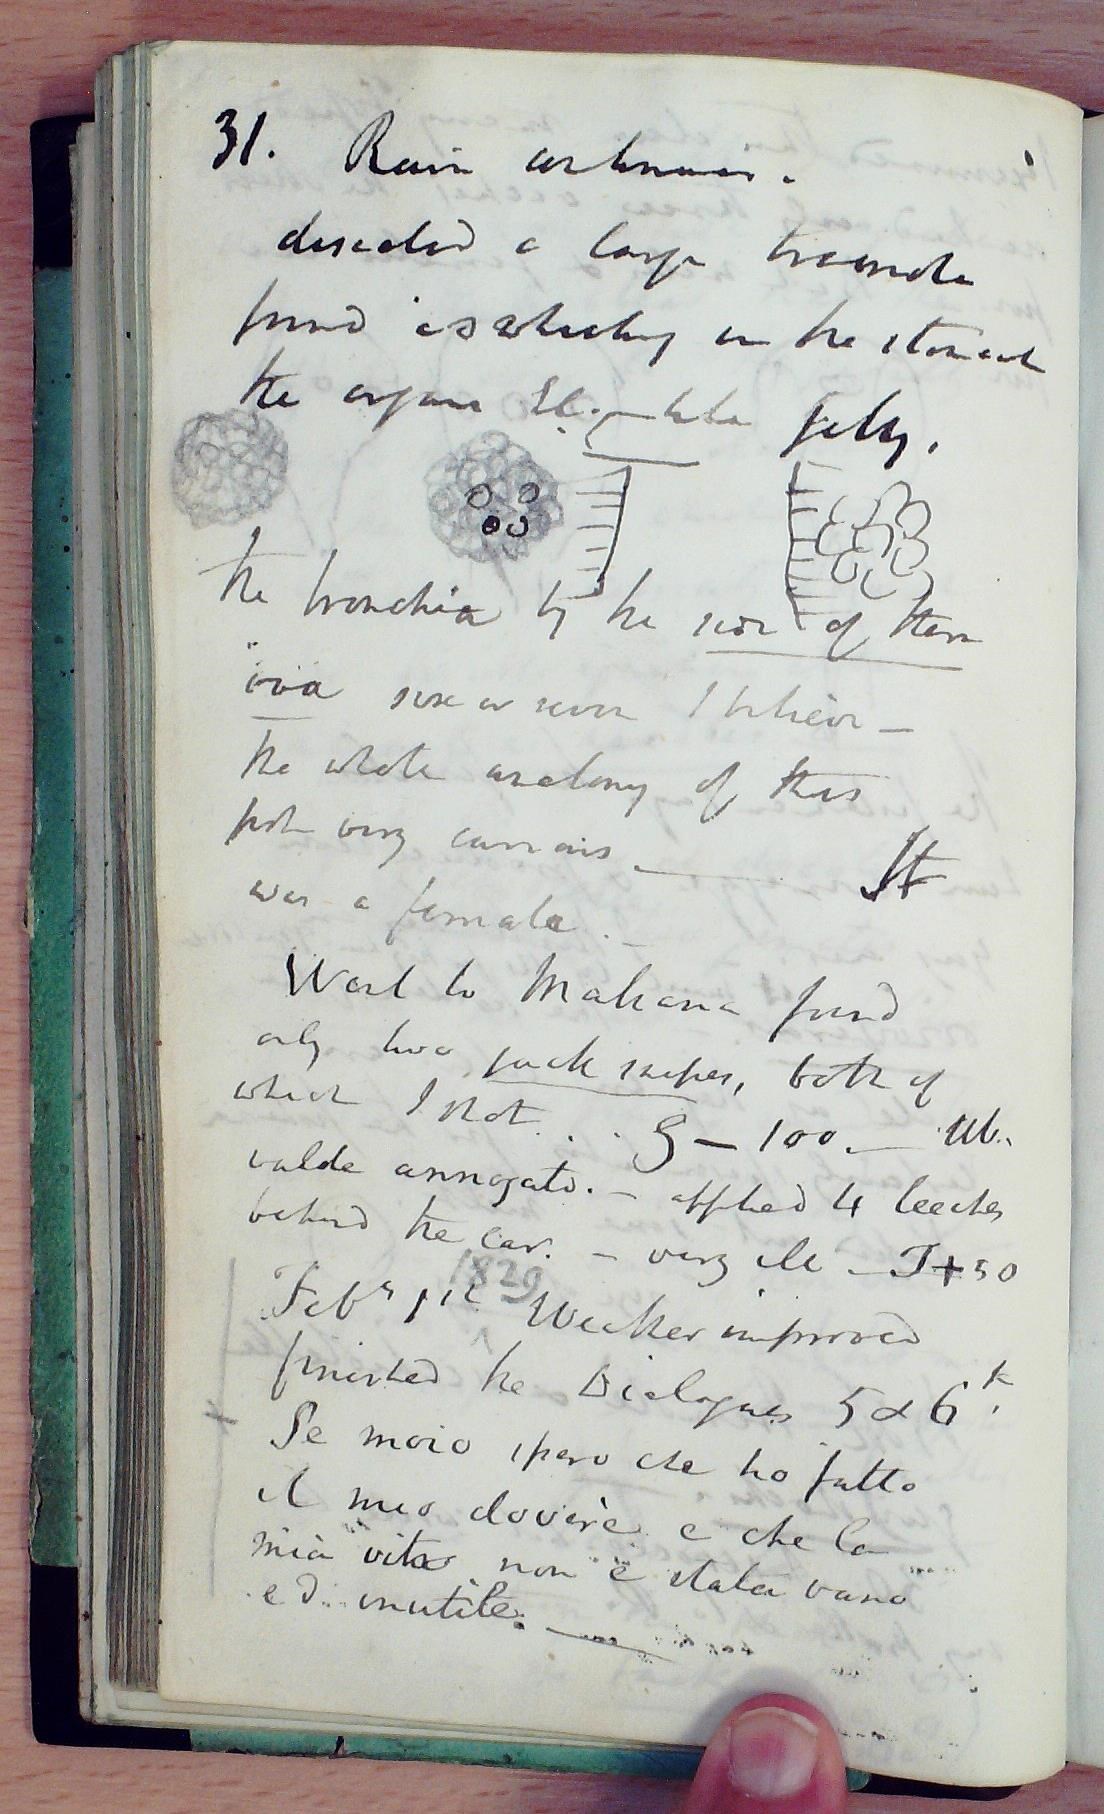 31. Rain continues.
disected a large
found in the stomach
the organs jelly.
the bronchia by the side of them
ova six or seven I believe —
the whole anatomy of this
fish very curious — It
was a female. —
Went to Makana found
only two jack snipes, both of
which I shot. . . G — 100. —
valde annogato. — applied 4 leeches
behind the ear. — very ill — T + 50
1829
Feby 1st Weather improved
finished the Dialogues 5 & 6th.
Se moio spero che ho fatto
il mio dovere e che la
mia vita non è stata vana
ed inutile. —